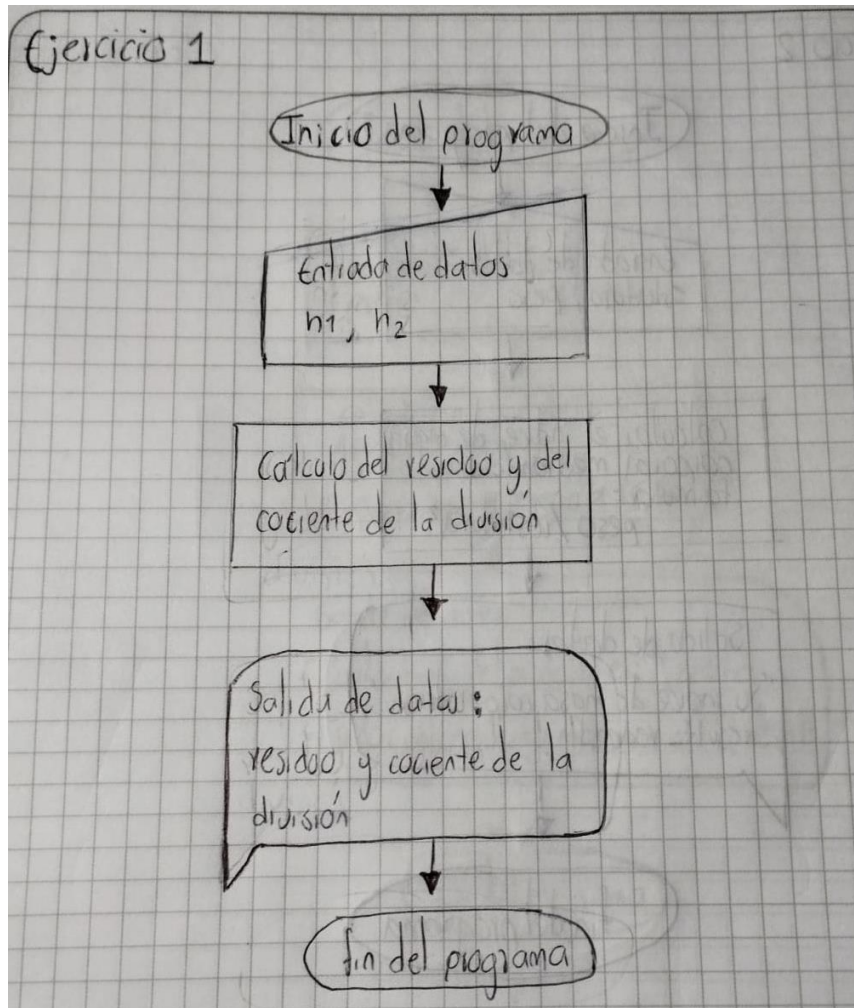 Ejercicio 1
Inicio del programa
Entrada de datos
n1, n2
Cálculo del residuo y del
cociente de la división
Salida de datos:
residuo y cociente de la
división
fin del programa